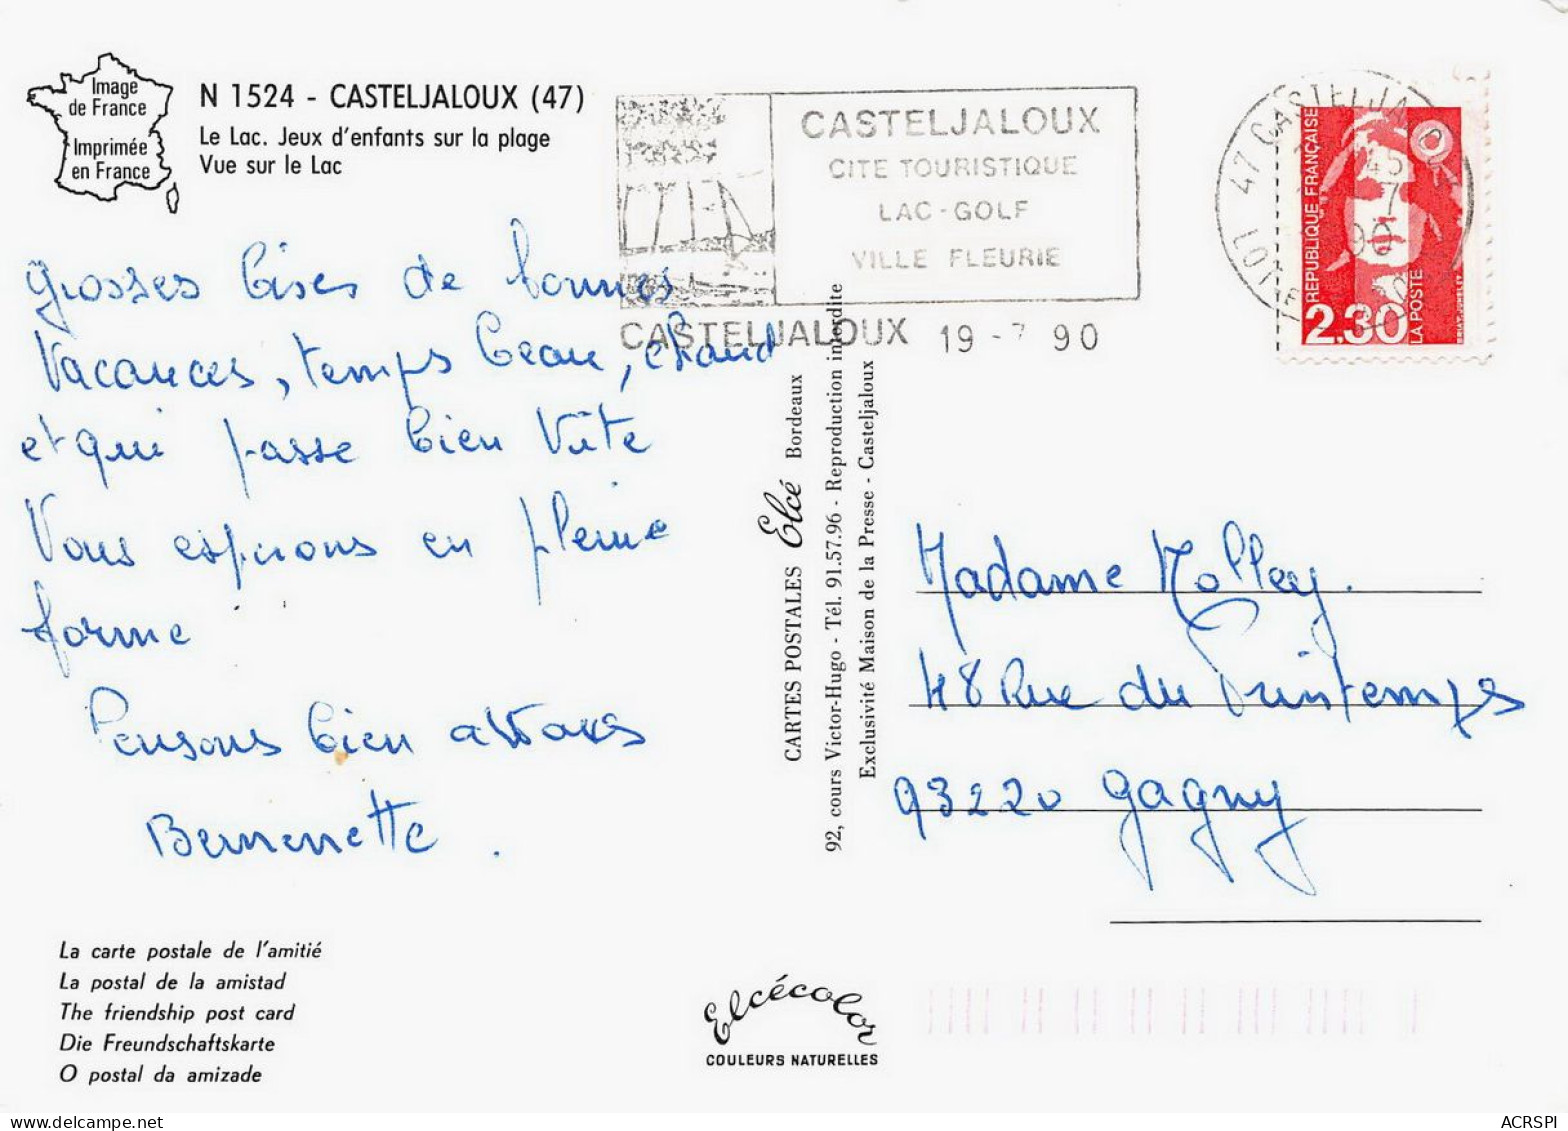 Image
de France
Imprimée
en France
N 1524 - CASTELJALOUX (47)
Le Lac. Jeux d'enfants sur la plage
Vue sur le Lac
CASTELJALOUX
CITE TOURISTIQUE
LAC-GOLF
VILLE FLEURIE
CASTELJALOUX 19 - 7 90
47 CASTELJA
LOT
45
7
90
REPUBLIQUE FRANÇAISE
2.30
LA POSTE
grosses bises de bonnes
Vacances, temps beau, chaud
et qui passe bien vite
Vous espérons en pleine
forme
Pensons bien à vous
Bernenette.
CARTES POSTALES Elcé Bordeaux
92, cours Victor-Hugo - Tél. 91.57.96 - Reproduction interdite
Exclusivité Maison de la Presse - Casteljaloux
Madame Molley.
48 Rue du Printemps
93220 Gagny
La carte postale de l'amitié
La postal de la amistad
The friendship post card
Die Freundschaftskarte
O postal da amizade
Elcécolor
COULEURS NATURELLES
ACRSPI